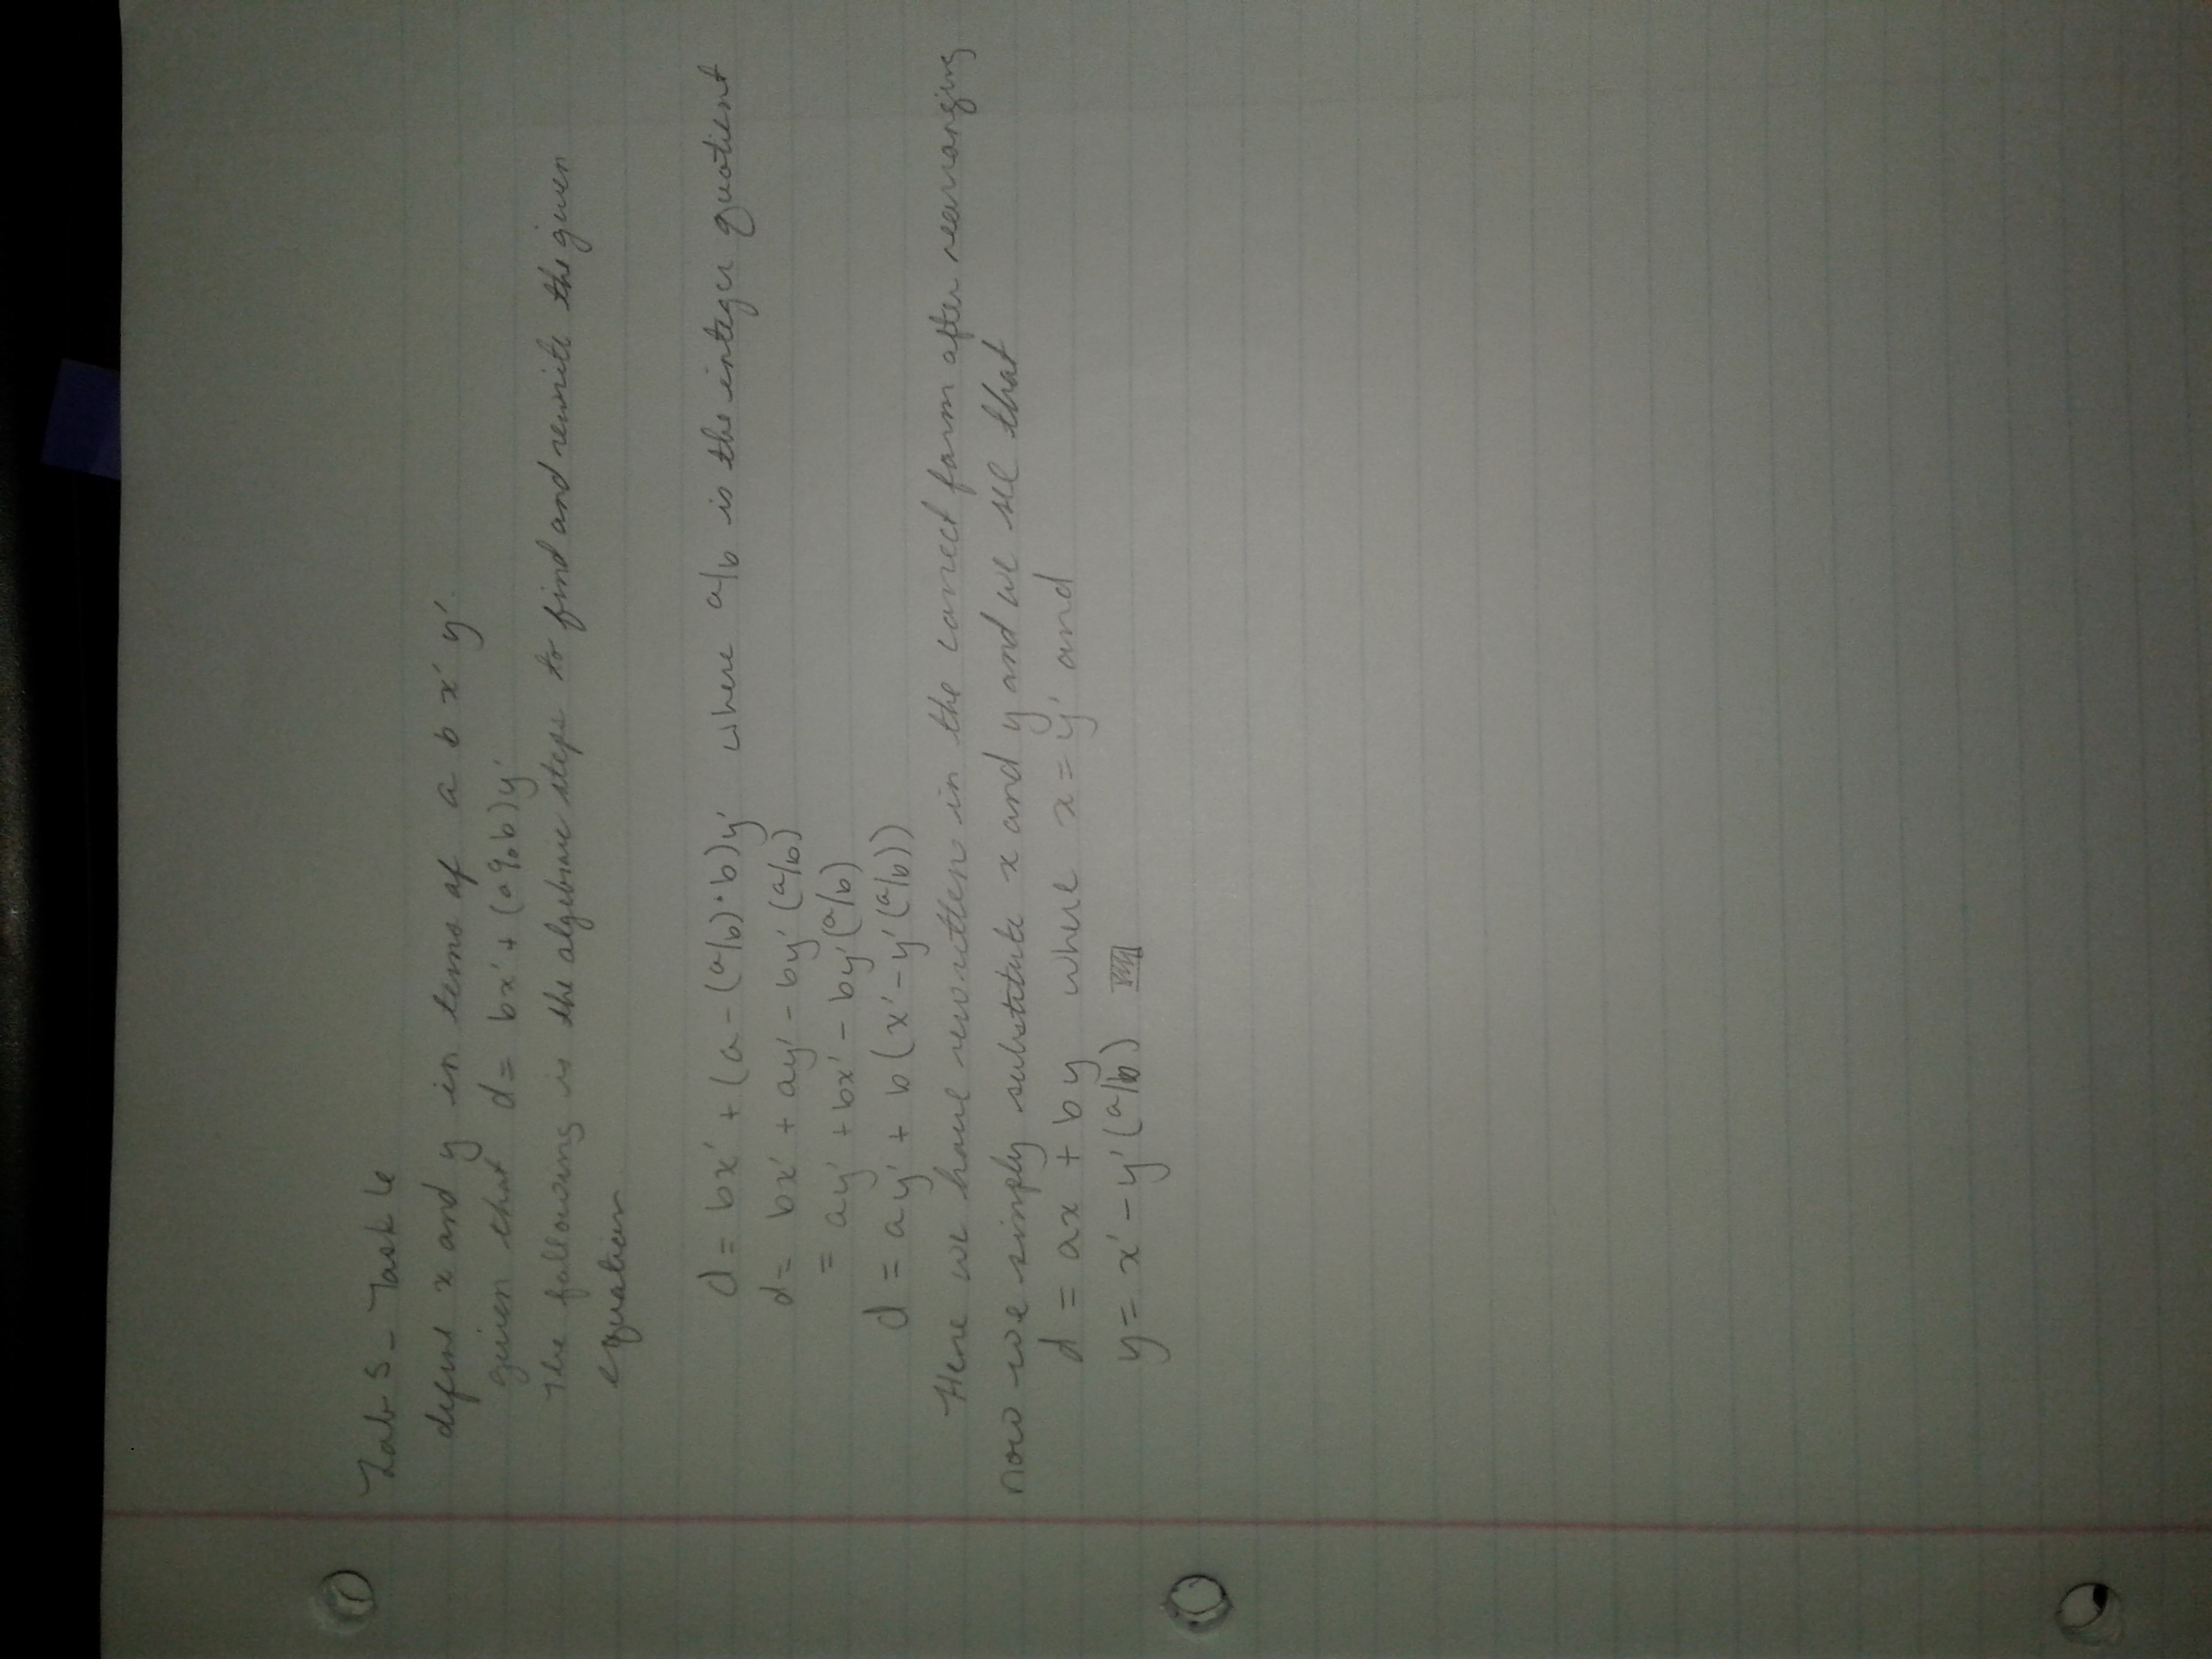 Lab 5 - Task 6
define x and y in terms of a b x' y'.
given that d = bx' + (a%b)y'
The following is the algebraic steps to find and rewrite the given
equation
d = bx' + (a - (a/b)·b)y' where a/b is the integer quotient
d = bx' + ay' - by' (a/b)
= ay' + bx' - by'(a/b)
d = ay' + b(x' - y'(a/b))
Here we have rewritten in the correct form after rearranging
now we simply substitute x and y and we see that
d = ax + by where x = y' and
y = x' - y'(a/b)